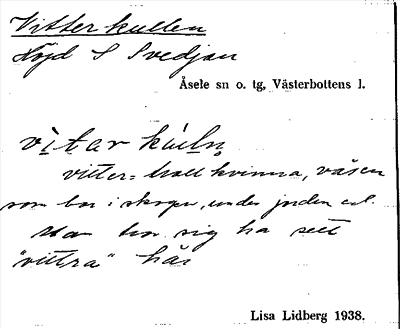 Vitterkullen
Höjd S Svedjan
Åsele sn o. tg, Västerbottens l.
vìtarkúln
vitter = trollkvinna, väsen
som bor i skogen, under jorden el.
Man tror sig ha sett
"vittra" här
Lisa Lidberg 1938.